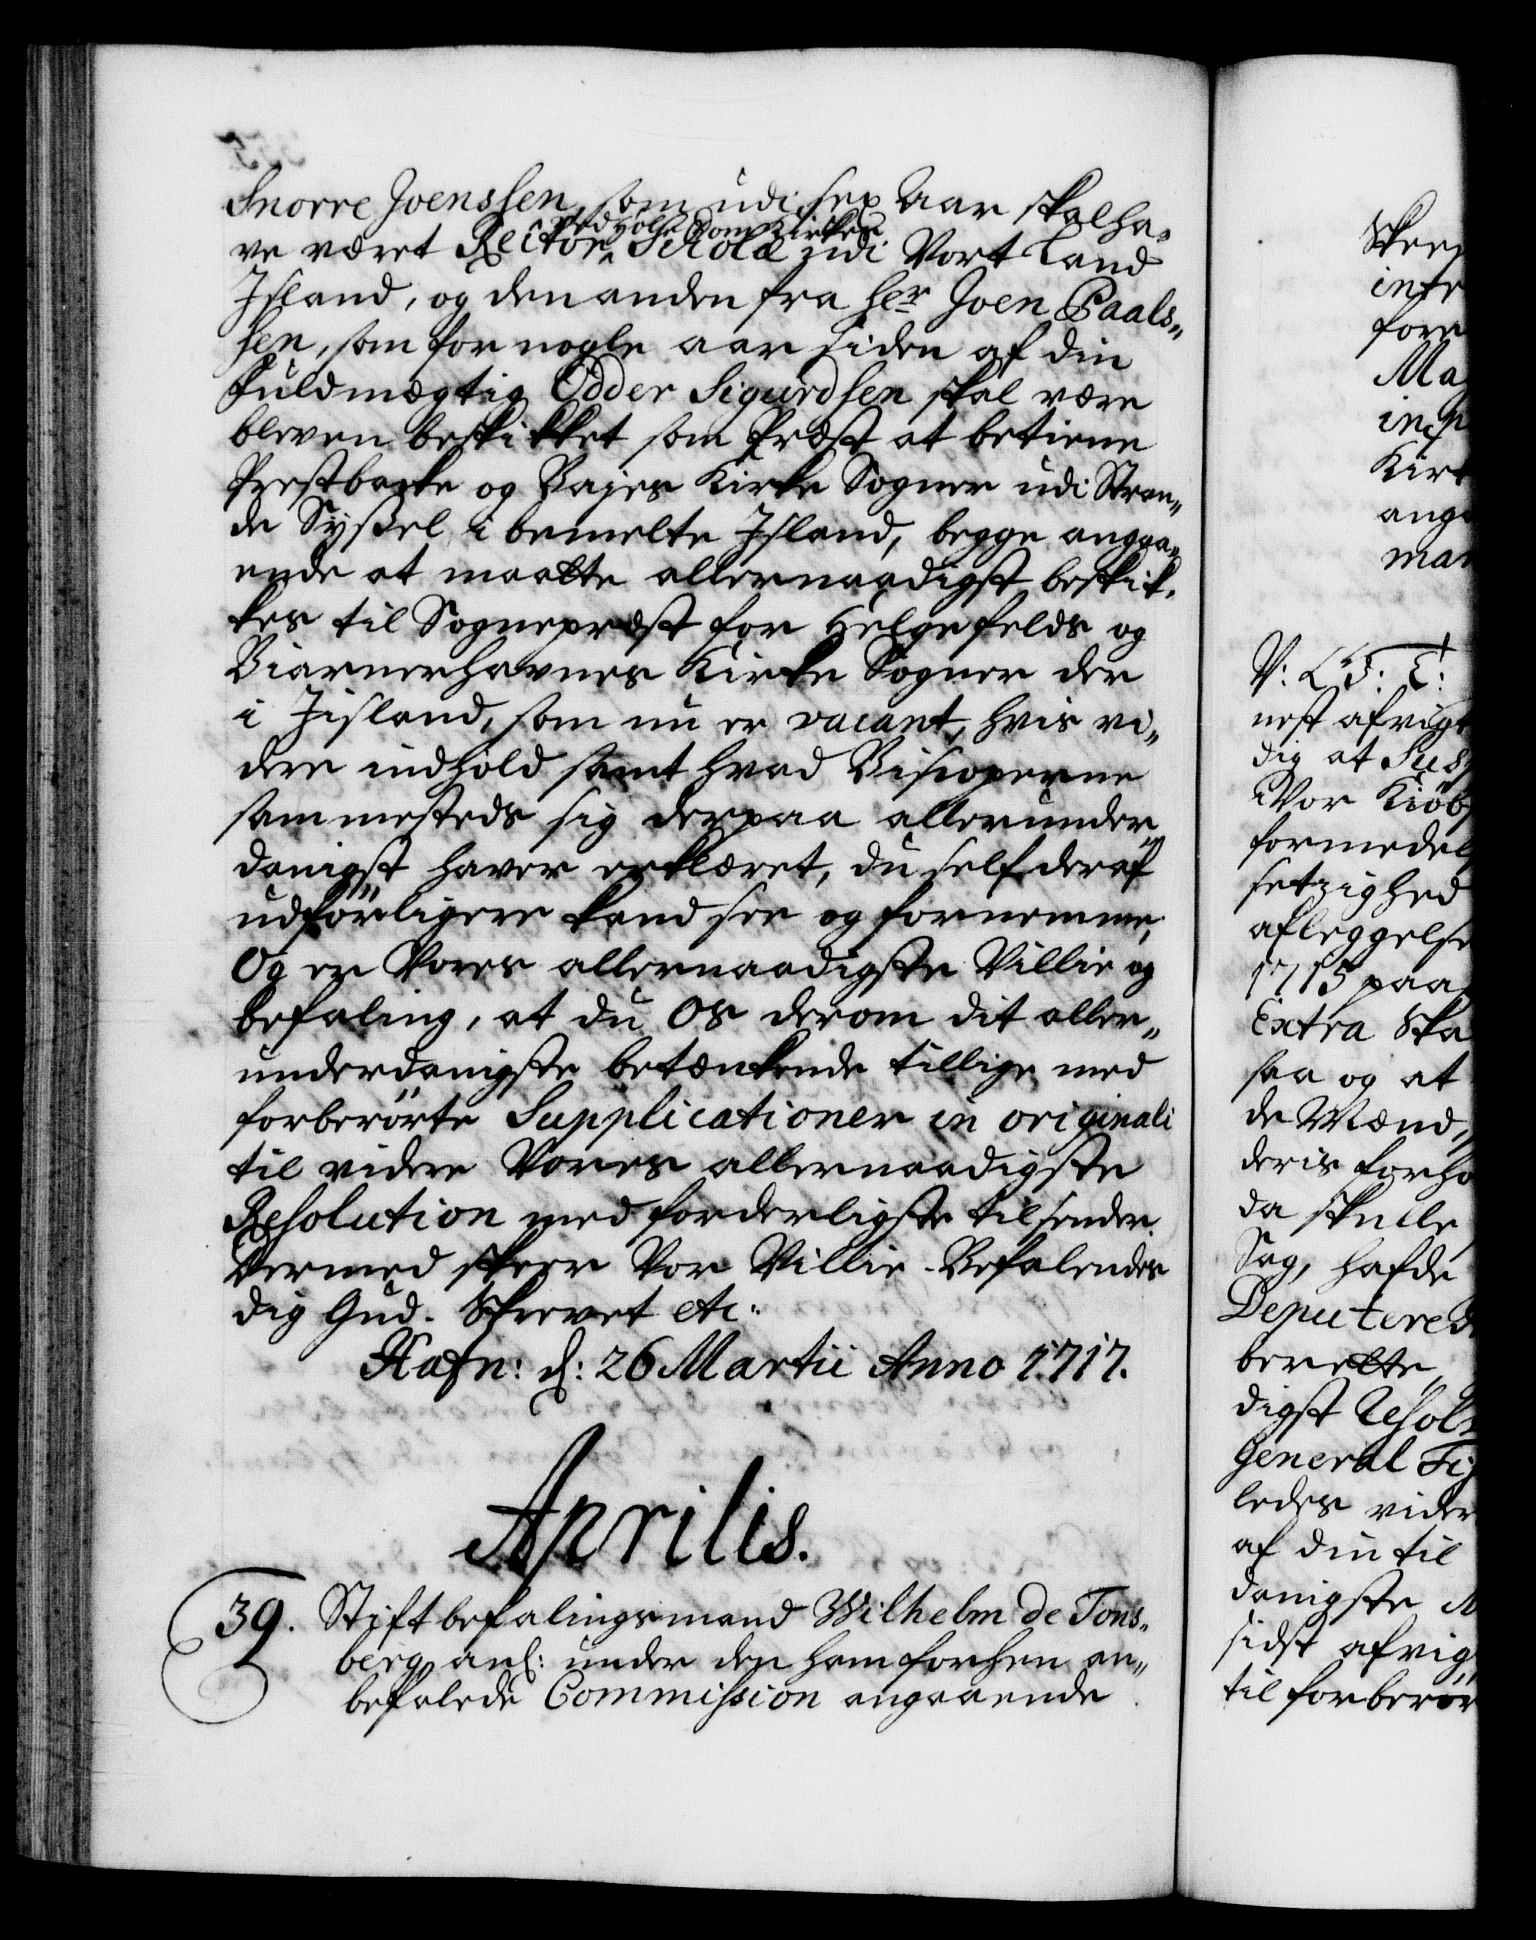 Snorre Joenssen, som udi sex Aar skal ha-
ved Hols Dom Kirkes
ve været Rector Scholæ udi Vort Land
Jsland, og den anden fra Her Joen Paals-
sen, som for nogle aar siden af din
Fuldmægtig Odder Sigurdsen skal være
bleven beskikket som Præst at betiene
Prestbacke og Bajes Kirke Sogner udi Stran-
de Syssel i bemelte Jsland, begge angaa-
ende at maatte allernaadigst beskik-
kes til Sognepræst for Helgefelds og
Biarnerhavnes Kirke Sogner der
i Jisland, som nu er vacant, hvis vi-
dere indhold samt hvad Biskoperne
sammesteds sig derpaa allerunder-
danigst haver erklæret, du self deraf
udførligere kand see og fornemme,
Og er Vores allernaadigste Villie og
befaling, at du Os derom dit aller-
underdanigste betænkende tillige med
forberørte Supplicationer in originali
til videre Vores allernaadigste
Resolution med forderligste tilsender.
Dermed skeer Vor Villie. Befalendes
dig Gud. Skrevet etc:
Hafn: d: 26 Martii Anno 1717.
Aprilis.
39. Stiftbefalingsmand Wilhelm de Tons-
berg anl: under den ham forhen an-
befalede Commission angaaende
Skee
intr
fore
Ma
insp
Kirk
anga
man
V: G: T:
nest afvigt
dig at Sus
Vor Kiöb
formedel
setzighed
afleggelse
1715 paa
Extra Ska
saa og at
de Mænd,
deris forho
da skulle
Sag, hafde
Deputered
berette
digst Resol
General Fis
ledes vider
af din til
danigste A
sidst afvig
til forberør